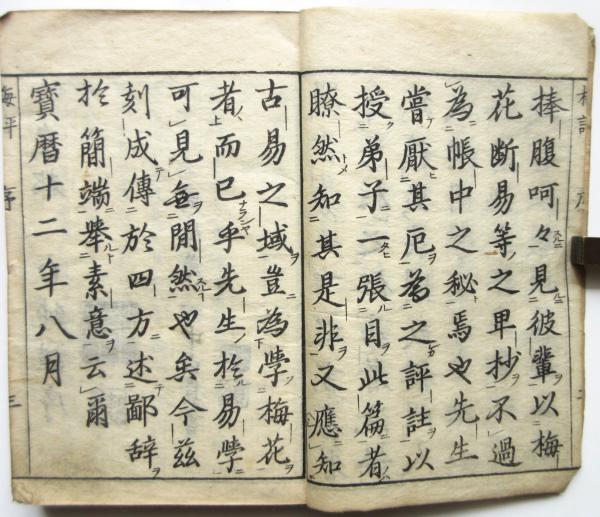 捧腹呵々見彼輩以梅
花斷易等之卑抄不過
為帳中之秘焉也先生
嘗厭其厄為之評註以
授弟子一張目此篇者
瞭然知其是非又應知
古易之域豈為學梅花
者而已乎先生於易學
可見無閒然也矣今茲
刻成傳於四方述鄙辞
於簡端舉素意云爾
寶暦十二年八月
梅評 序 三